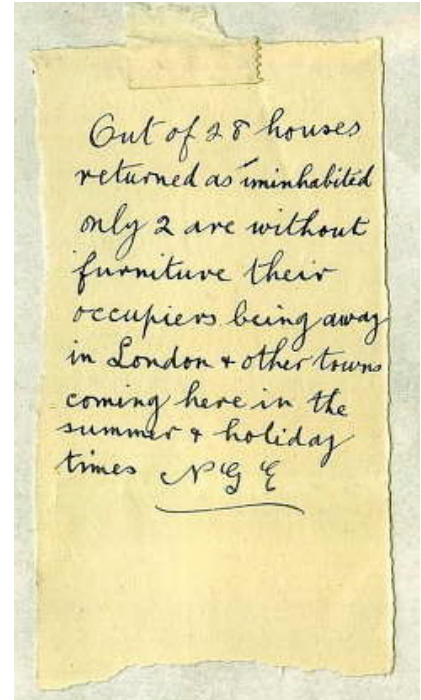 Out of 28 houses
returned as uninhabited
only 2 are without
furniture their
occupiers being away
in London + other towns
coming here in the
summer + holiday
times N G E